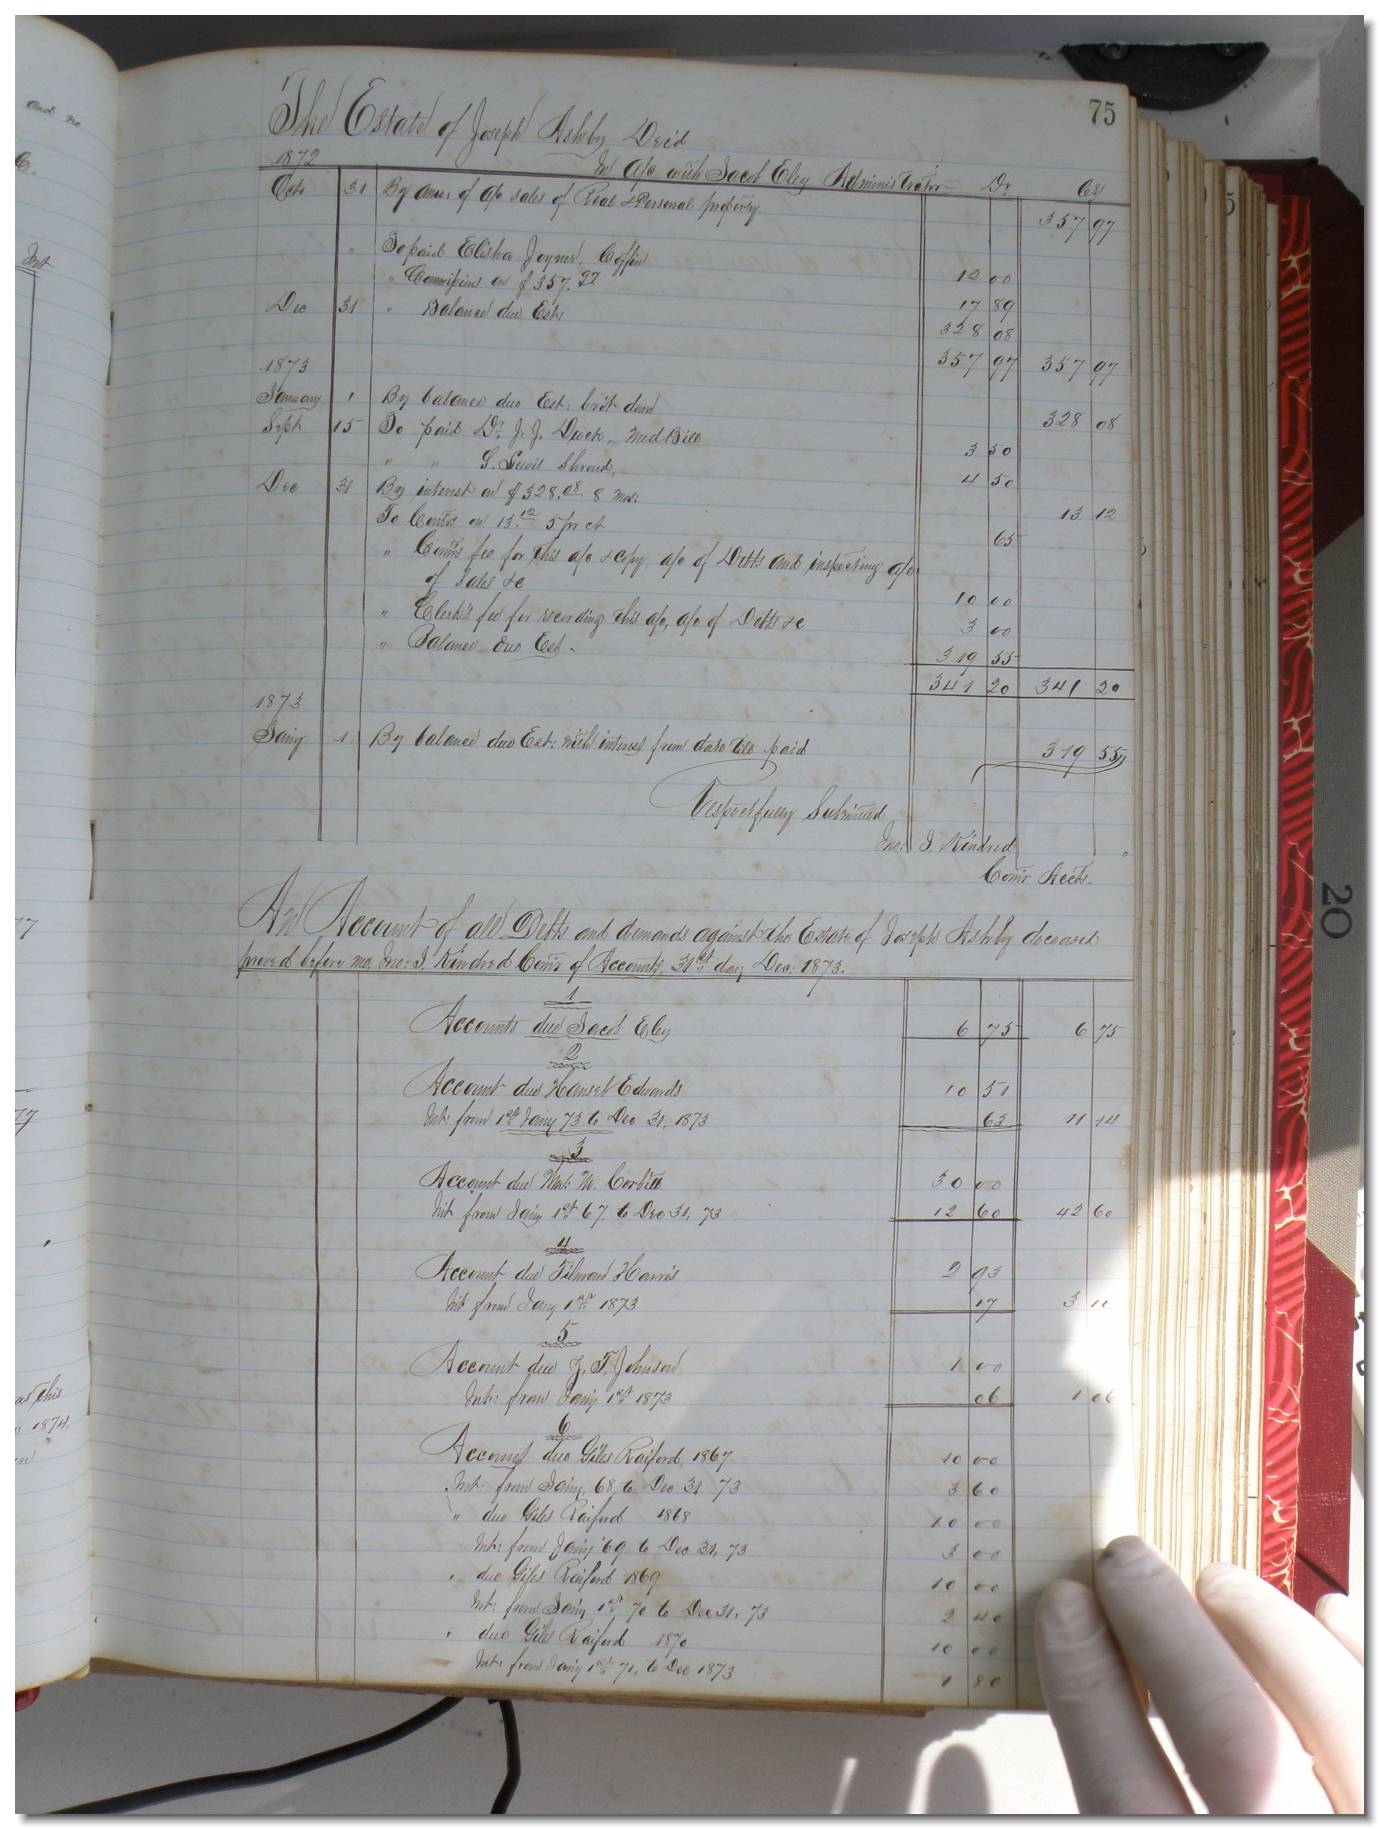 75
The Estate of Joseph Ashby Decd
1872 In a/c with Jacob Eley Administrator Dr Cr
Octr 31 By amt of a/c sales of Real & Personal property 357 97
" To paid Elisha Joyner, Coffin 12 00
" Commissions on $357.97 17 89
Dec 31 " Balance due Este 328 08
357 97 357 97
1873
January 1 By balance due Est: brot down 328 08
Sept 15 To paid Dr. J. J. Duck, Med Bill 3 50
" " S. Lewis Shroud, 4 50
Dec 31 By interest on $328.08 8 Mos: 13 12
To Coms on 13.12 5 pr ct 65
" Comrs fee for this a/c & copy, a/c of Debts and inspecting a/c
of Sales &c 10 00
" Clerk's fee for recording this a/c, a/c of Debts &c 3 00
" Balance due Est - 319 55
341 20 341 20
1873
Jany 1 By balance due Est: with interest from date till paid 319 55
Respectfully Submitted
Jno: I. Kindred
Comr Accts.
An Account of all Debts and demands against the Estate of Joseph Ashby deceased
proved before me, Jno: I. Kindred Comr of Accounts, 31st day Dec: 1873.
1
Accounts due Jacob Eley 6 75 6 75
2
Account due Hansel Edwards 10 51
Int: from 1st Jany 73 to Dec 31, 1873 63 11 14
3
Account due Wm. M. Corbitt 30 00
Int from Jany 1st 67, to Dec 31, 73 12 60 42 60
4
Account due Tilman Harris 2 93
Int from Jany 1st 1873 17 3 10
5
Account due J. T. Johnson 1 00
Int: from Jany 1st 1873 06 1 06
6
Account due Giles Raiford, 1867 10 00
Int: from Jany, 68, to Dec 31 73 3 60
" due Giles Raiford 1868 10 00
Int: from Jany 69 to Dec 31, 73 3 00
" due Giles Raiford 1869 10 00
Int: from Jany 1st 70 to Dec 31, 73 2 40
" due Giles Raiford 1870 10 00
Int: from Jany 1st 71, to Dec 1873 1 80
20
and no
as this
1874,